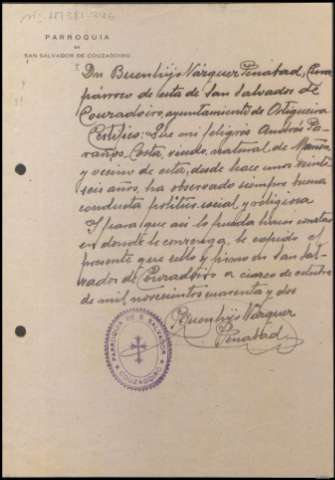 PARROQUIA
DE
SAN SALVADOR DE COUZADOIRO
Dn Buenhijo Vázquez Penabad, Cura
párroco de esta de San Salvador de
Couzadoiro, ayuntamiento de Ortigueira
Certifico: Que mi feligrés Andrés
Costa, viudo, natural de Mañón
y vecino de esta, desde hace unos veinte
seis años, ha observado siempre buena
conducta político, social, y religiosa
Y para que así lo pueda hacer constar
en donde le convenga, le expido el
presente que sello y firmo en San Sal-
vador de Couzadoiro a cinco de octubre
de mil novecientos cuarenta y dos
Buenhijo Vázquez
Penabad
PARROQUIA DE S. SALVADOR
COUZADOIRO